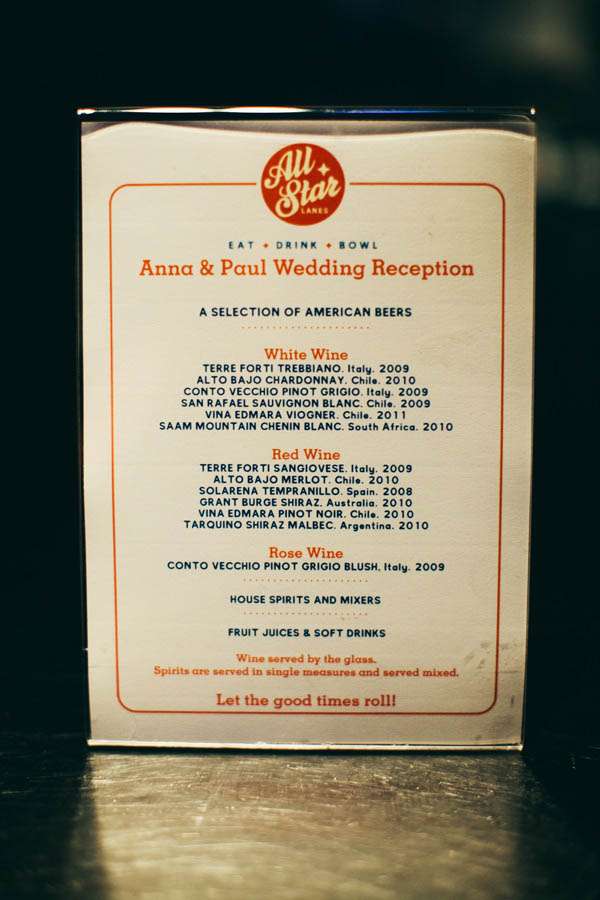 All Star
LANES
EAT ✦ DRINK ✦ BOWL
Anna & Paul Wedding Reception
A SELECTION OF AMERICAN BEERS
White Wine
TERRE FORTI TREBBIANO. Italy. 2009
ALTO BAJO CHARDONNAY. Chile. 2010
CONTO VECCHIO PINOT GRIGIO. Italy. 2009
SAN RAFAEL SAUVIGNON BLANC. Chile. 2009
VINA EDMARA VIOGNER. Chile. 2011
SAAM MOUNTAIN CHENIN BLANC. South Africa. 2010
Red Wine
TERRE FORTI SANGIOVESE. Italy. 2009
ALTO BAJO MERLOT. Chile. 2010
SOLARENA TEMPRANILLO. Spain. 2008
GRANT BURGE SHIRAZ. Australia. 2010
VINA EDMARA PINOT NOIR. Chile. 2010
TARQUINO SHIRAZ MALBEC. Argentina. 2010
Rose Wine
CONTO VECCHIO PINOT GRIGIO BLUSH. Italy. 2009
HOUSE SPIRITS AND MIXERS
FRUIT JUICES & SOFT DRINKS
Wine served by the glass.
Spirits are served in single measures and served mixed.
Let the good times roll!